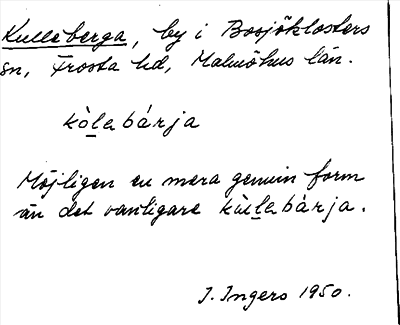 Kulleberga, by i Bosjöklosters
sn, Frosta hd, Malmöhus län.
kòlabárja
Möjligen en mera genuin form
än det vanligare kùlabárja.
I. Ingers 1950.